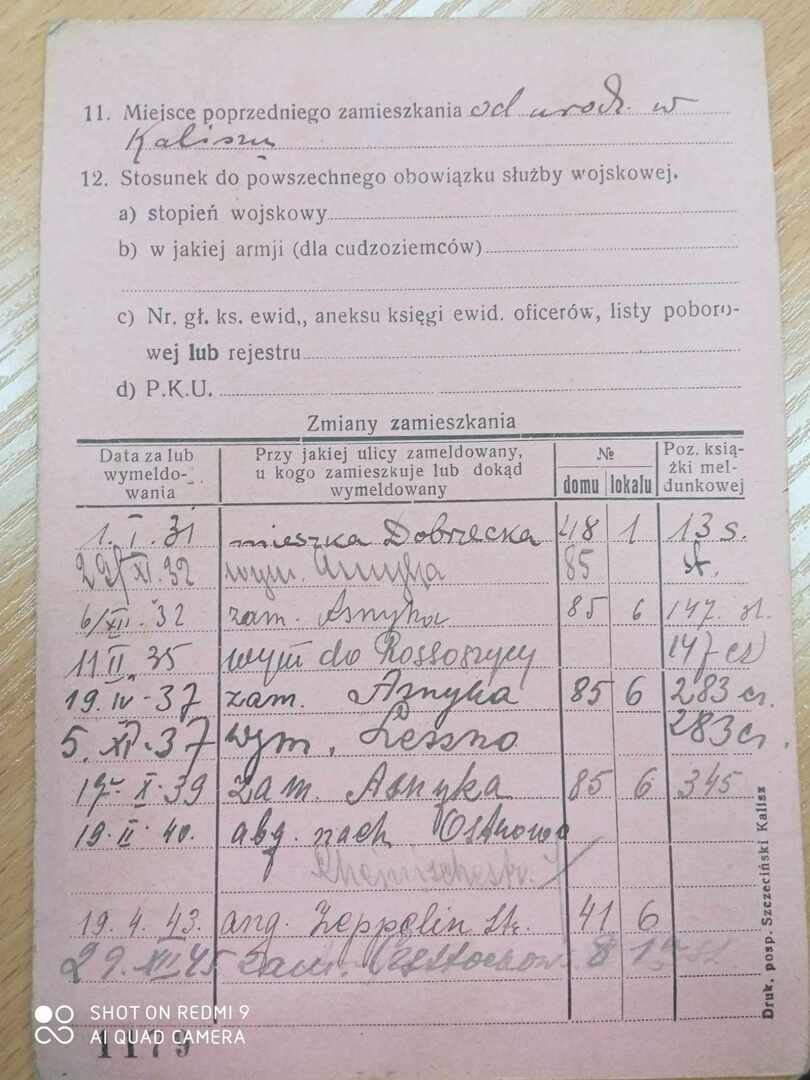 11. Miejsce poprzedniego zamieszkania od urodz. w
Kaliszu
12. Stosunek do powszechnego obowiązku służby wojskowej.
a) stopień wojskowy
b) w jakiej armji (dla cudzoziemców)
c) Nr. gł. ks. ewid,, aneksu księgi ewid. oficerów, listy poboro-
wej lub rejestru
d) P.K.U.
Zmiany zamieszkania
Data za lub wymeldo- wania Przy jakiej ulicy zameldowany, u kogo zamieszkuje lub dokąd wymeldowany № domu lokalu Poz. ksią- żki mel- dunkowej
1. I. 31 mieszka Dobrzecka 48 1 13 s.
29/XI. 32 wym. Asnyka 85
6/XII. 32 zam. Asnyka 85 6 147. st.
11 II. 35 wym do Rossoszycy 147 cs
19. IV. 37 zam. Asnyka 85 6 283 cs.
5. XI. 37 wym. Leszno 283 cs.
17. X. 39 zam. Asnyka 85 6 345
19. II. 40. abg. nach Ostrowo
19. 4. 43. ang. Zeppelin Str. 41 6
29. XII 45 zam. 8
Druk. posp. Szczeciński Kalisz
SHOT ON REDMI 9
AI QUAD CAMERA
1179